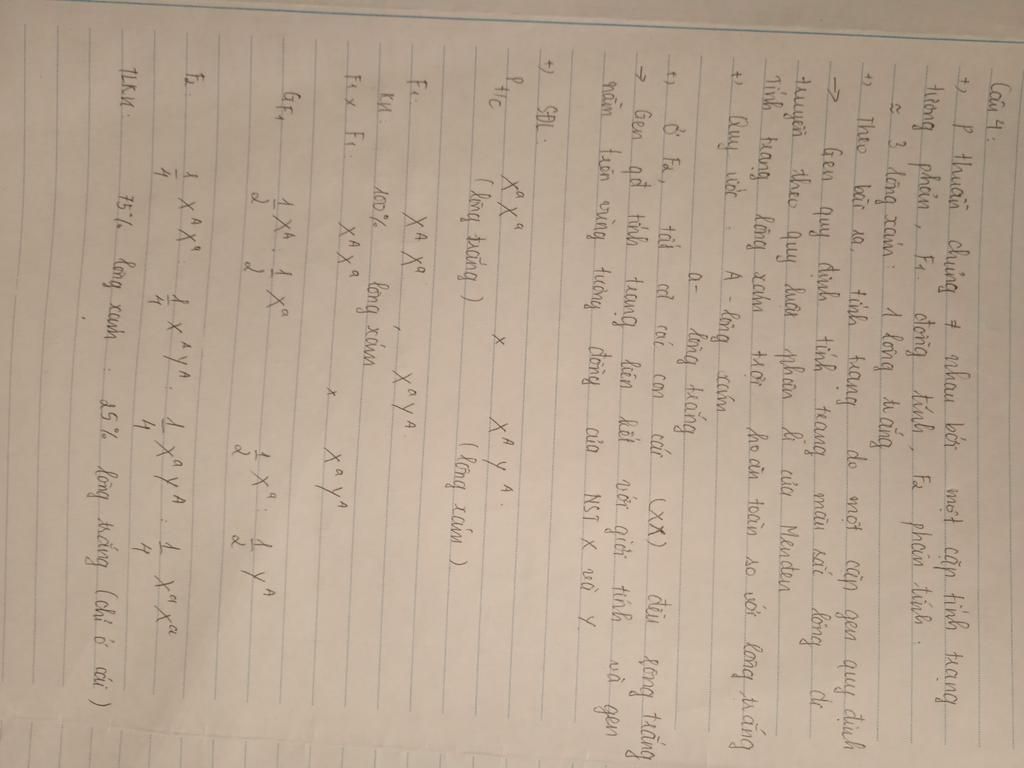 Câu 4:
+) P thuần chủng ≠ nhau bởi một cặp tính trạng
tương phản, F1 đồng tính, F2 phân tính.
≈ 3 lông xám : 1 lông trắng
+) Theo bài ra, tính trạng do một cặp gen quy định
→ Gen quy định tính trạng màu sắc lông di
truyền theo quy luật phân li của Menđen
Tính trạng lông xám trội hoàn toàn so với lông trắng
+) Quy ước: A - lông xám
a - lông trắng
+) Ở F2, tất cả các con cái (XX) đều lông trắng
→ Gen qđ tính trạng liên kết với giới tính và gen
nằm trên vùng tương đồng của NST X và Y
+) SĐL:
Pt/c XᵃXᵃ x XᴬYᴬ
(lông trắng) (lông xám)
F1: XᴬXᵃ , XᵃYᴬ
KH: 100% lông xám
F1 x F1: XᴬXᵃ x XᵃYᴬ
GF1 1/2 Xᴬ : 1/2 Xᵃ 1/2 Xᵃ : 1/2 Yᴬ
F2: 1/4 XᴬXᵃ : 1/4 XᴬYᴬ : 1/4 XᵃYᴬ : 1/4 XᵃXᵃ
TLKH: 75% lông xám : 25% lông trắng (chỉ ở cái)